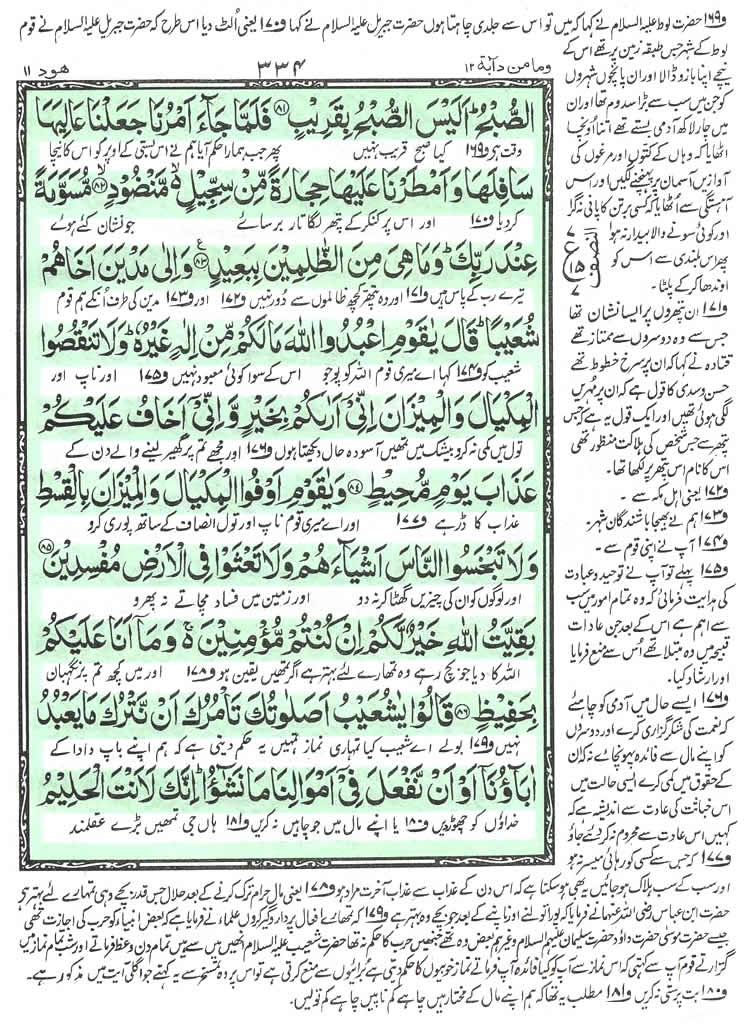 ف۱۶۹ حضرت لوط علیہ السلام نے کہا کہ میں تو اس سے جلدی چاہتا ہوں حضرت جبریل علیہ السلام نے کہا ف۱۷۰ یعنی اُلٹ دیا اس طرح کہ حضرت جبریل علیہ السلام نے قوم
لوط کے شہر جس طبقہ زمین پر تھے اس کے
نیچے اپنا بازو ڈالا اور ان پانچوں شہروں
کو جن میں سب سے بڑا سدوم تھا اور ان
میں چار لاکھ آدمی بستے تھے اتنا اُونچا
اُٹھایا کہ وہاں کے کتوں اور مرغوں کی
آوازیں آسمان پر پہنچنے لگیں اور اس
آہستگی سے اُٹھایا کہ کسی برتن کا پانی نہ گرا
اور کوئی سونے والا بیدار نہ ہوا
پھر اس بلندی سے اس کو
اوندھا کر کے پلٹا۔
ف۱۷۱ ان پتھروں پر ایسا نشان تھا
جس سے وہ دوسروں سے ممتاز تھے
قتادہ نے کہا کہ ان پر سرخ خطوط تھے
حسن وسدی کا قول ہے کہ ان پر مُہریں
لگی ہوئی تھیں اور ایک قول یہ ہے کہ جس
پتھر سے جس شخص کی ہلاکت منظور تھی
اس کا نام اس پتھر پر لکھا تھا۔
ف۱۷۲ یعنی اہل مکہ سے۔
ف۱۷۳ ہم نے بھیجا باشندگان شہر۔
ف۱۷۴ آپ نے اپنی قوم سے۔
ف۱۷۵ پہلے تو آپ نے توحید و عبادت
کی ہدایت فرمائی کہ وہ تمام امور میں سب
سے اہم ہے اس کے بعد جن عادات
قبیحہ میں وہ مبتلا تھے اُس سے منع فرمایا
اور ارشاد کیا۔
ف۱۷۶ ایسے حال میں آدمی کو چاہئے
کہ نعمت کی شکر گزاری کرے اور دوسروں
کو اپنے مال سے فائدہ پہونچائے نہ کہ ان
کے حقوق میں کمی کرے ایسی حالت میں
اس خباثت کی عادت سے اندیشہ ہے کہ
کہیں اس عادت سے محروم نہ کر دئیے جاؤ
ف۱۷۷ کہ جس سے کسی کو رہائی میسر نہ ہو
وما من دآبۃ ۱۲
۳۳۴
ھود ۱۱
الصُّبْحُ ؕ اَلَیْسَ الصُّبْحُ بِقَرِیْبٍ ﴿۸۱﴾ فَلَمَّا جَآءَ اَمْرُنَا جَعَلْنَا عَالِیَهَا
وقت ہے ف۱۶۹ کیا صبح قریب نہیں پھر جب ہمارا حکم آیا ہم نے اس بستی کے اوپر کو اس کا نیچا
سَافِلَهَا وَ اَمْطَرْنَا عَلَیْهَا حِجَارَةً مِّنْ سِجِّیْلٍ ۙ۬ مَّنْضُوْدٍ ﴿۸۲﴾ مُّسَوَّمَةً
کردیا ف۱۷۰ اور اس پر کنکر کے پتھر لگاتار برسائے جو نشان کئے ہوئے
عِنْدَ رَبِّكَ ؕ وَ مَا هِیَ مِنَ الظّٰلِمِیْنَ بِبَعِیْدٍ ﴿۸۳﴾ وَ اِلٰی مَدْیَنَ اَخَاهُمْ
تیرے رب کے پاس ہیں ف۱۷۱ اور وہ پتھر کچھ ظالموں سے دُور نہیں ف۱۷۲ اور ف۱۷۳ مدین کی طرف اُنکے ہم قوم
النصف
ع ۷ ۱۵ ۷
شُعَیْبًا ؕ قَالَ یٰقَوْمِ اعْبُدُوا اللّٰهَ مَا لَكُمْ مِّنْ اِلٰهٍ غَیْرُهٗ ؕ وَ لَا تَنْقُصُوا
شعیب کو ف۱۷۴ کہا اے میری قوم اللہ کو پوجو اس کے سوا کوئی معبود نہیں ف۱۷۵ اور ناپ اور
الْمِكْیَالَ وَ الْمِیْزَانَ اِنِّیْۤ اَرٰىكُمْ بِخَیْرٍ وَّ اِنِّیْۤ اَخَافُ عَلَیْكُمْ
تول میں کمی نہ کرو بیشک میں تمھیں آسودہ حال دیکھتا ہوں ف۱۷۶ اور مجھے تم پر گھیر لینے والے دن کے
عَذَابَ یَوْمٍ مُّحِیْطٍ ﴿۸۴﴾ وَ یٰقَوْمِ اَوْفُوا الْمِكْیَالَ وَ الْمِیْزَانَ بِالْقِسْطِ
عذاب کا ڈر ہے ف۱۷۷ اور اے میری قوم ناپ اور تول انصاف کے ساتھ پوری کرو
وَ لَا تَبْخَسُوا النَّاسَ اَشْیَآءَهُمْ وَ لَا تَعْثَوْا فِی الْاَرْضِ مُفْسِدِیْنَ ﴿۸۵﴾
اور لوگوں کو ان کی چیزیں گھٹا کر نہ دو اور زمین میں فساد مچاتے نہ پھرو
بَقِیَّتُ اللّٰهِ خَیْرٌ لَّكُمْ اِنْ كُنْتُمْ مُّؤْمِنِیْنَ ۚ۬ وَ مَاۤ اَنَا عَلَیْكُمْ
اللہ کا دیا جو بچ رہے وہ تمھارے لئے بہتر ہے اگر تمھیں یقین ہو ف۱۷۸ اور میں کچھ تم پر نگہبان
بِحَفِیْظٍ ﴿۸۶﴾ قَالُوْا یٰشُعَیْبُ اَصَلٰوتُكَ تَاْمُرُكَ اَنْ نَّتْرُكَ مَا یَعْبُدُ
نہیں ف۱۷۹ بولے اے شعیب کیا تمہاری نماز تمہیں یہ حکم دیتی ہے کہ ہم اپنے باپ دادا کے
اٰبَآؤُنَاۤ اَوْ اَنْ نَّفْعَلَ فِیْۤ اَمْوَالِنَا مَا نَشٰٓؤُا ؕ اِنَّكَ لَاَنْتَ الْحَلِیْمُ
خداؤں کو چھوڑ دیں ف۱۸۰ یا اپنے مال میں جو چاہیں نہ کریں ف۱۸۱ ہاں جی تمھیں بڑے عقلمند
اور سب کے سب ہلاک ہو جائیں یہ بھی ہو سکتا ہے کہ اس دن کے عذاب سے عذاب آخرت مراد ہو ف۱۷۸ یعنی مال حرام ترک کرنے کے بعد حلال جس قدر بچے وہی تمہارے لئے بہتر ہے
حضرت ابن عباس رضی اللہ عنہما نے فرمایا کہ پورا تولنے اور ناپنے کے بعد جو بچے وہ بہتر ہے ف۱۷۹ کہ تمھارے افعال پر دار و گیر کروں علماء نے فرمایا ہے کہ بعض انبیا کو حرب کی اجازت تھی
جیسے حضرت موسیٰ حضرت داؤد حضرت سلیمان علیہم السلام وغیرہم بعض وہ تھے جنھیں حرب کا حکم نہ تھا حضرت شعیب علیہ السلام انھیں میں سے ہیں تمام دن وعظ فرماتے اور شب تمام نماز میں
گزارتے قوم آپ سے کہتی کہ اس نماز سے آپ کو کیا فائدہ آپ فرماتے نماز خوبیوں کا حکم دیتی ہے بُرائیوں سے منع کرتی ہے تو اس پر وہ تمسخر سے یہ کہتے جو اگلی آیت میں مذکور ہے۔
ف۱۸۰ بت پرستی نہ کریں ف۱۸۱ مطلب یہ تھا کہ ہم اپنے مال کے مختار ہیں چاہے کم ناپیں چاہے کم تولیں۔